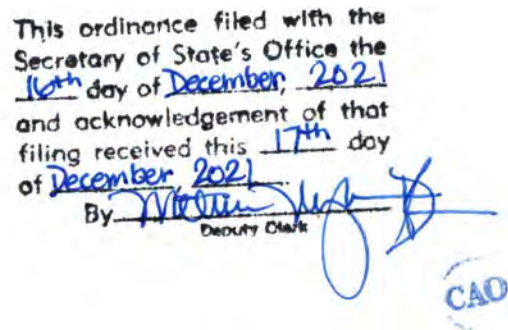 This ordinance filed with the
Secretary of State's Office the
16th day of December, 2021
and acknowledgement of that
filing received this 17th day
of December, 2021
By
Deputy Clerk
CAO